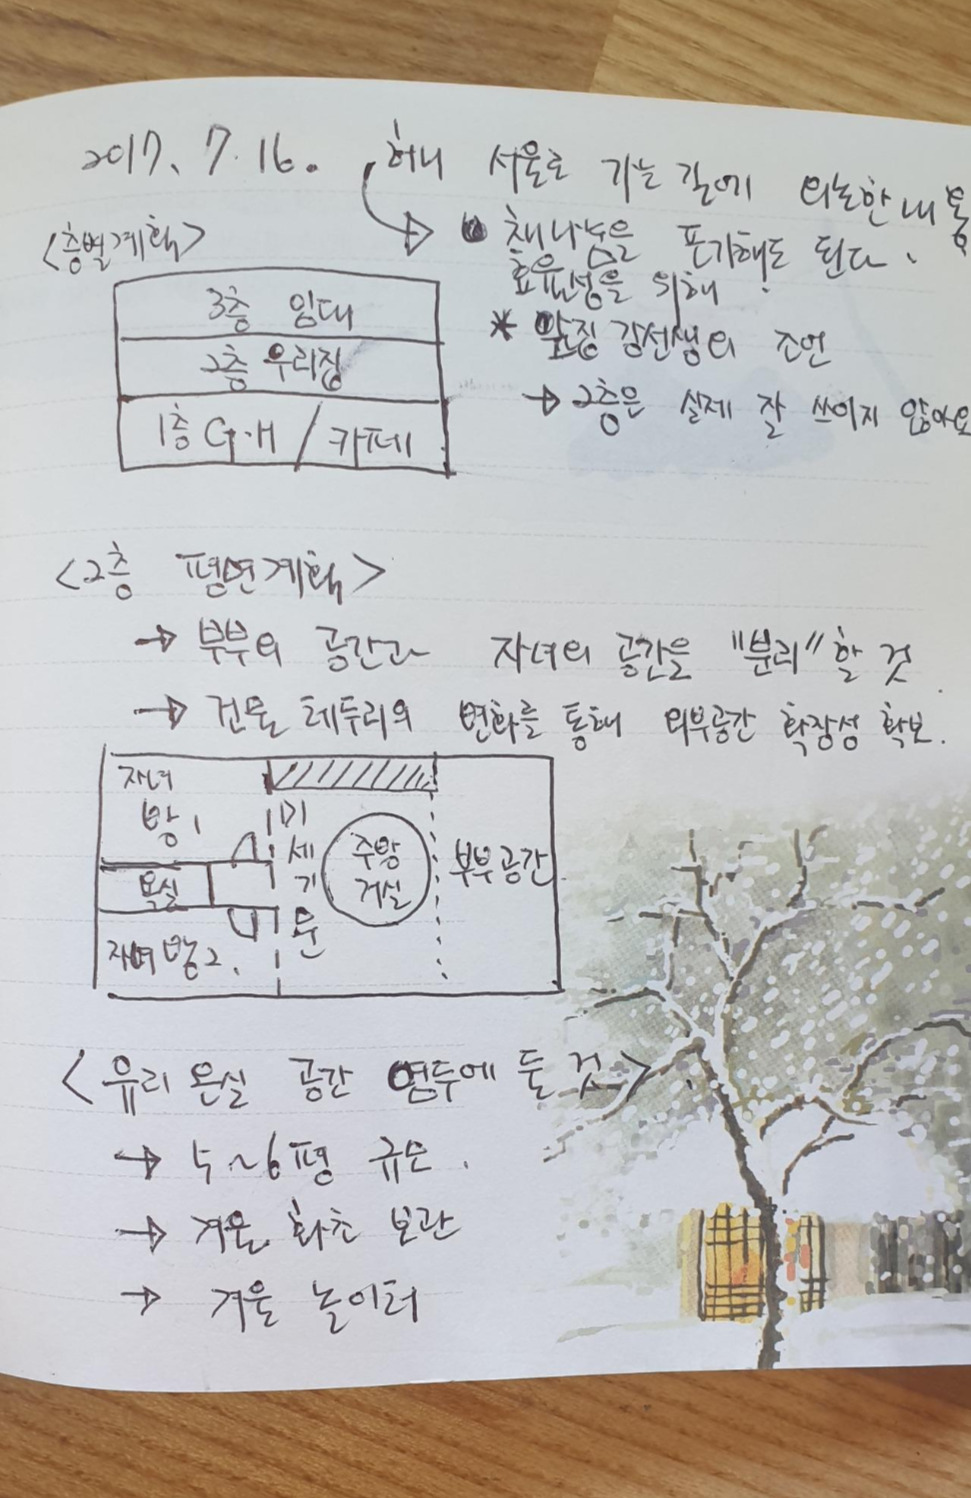 2017. 7. 16. 허니 서울로 가는 길에 의논한 내용
<층별계획>
● 채나눔을 포기해도 된다.
효율성을 위해!
* 앞집 강선생의 조언
→ 2층은 실제 잘 쓰이지 않아요
3층 임대
2층 우리집
1층 G.H / 카페
<2층 평면계획>
→ 부부의 공간과 자녀의 공간을 "분리"할 것.
→ 건물 테두리의 변화를 통해 외부공간 확장성 확보.
자녀
방1
욕실
자녀방2.
미
세
기
문
중앙
거실
부부공간
<유리온실 공간 염두에 둘 것>.
→ 5~6평 규모.
→ 겨울 화초 보관
→ 겨울 놀이터